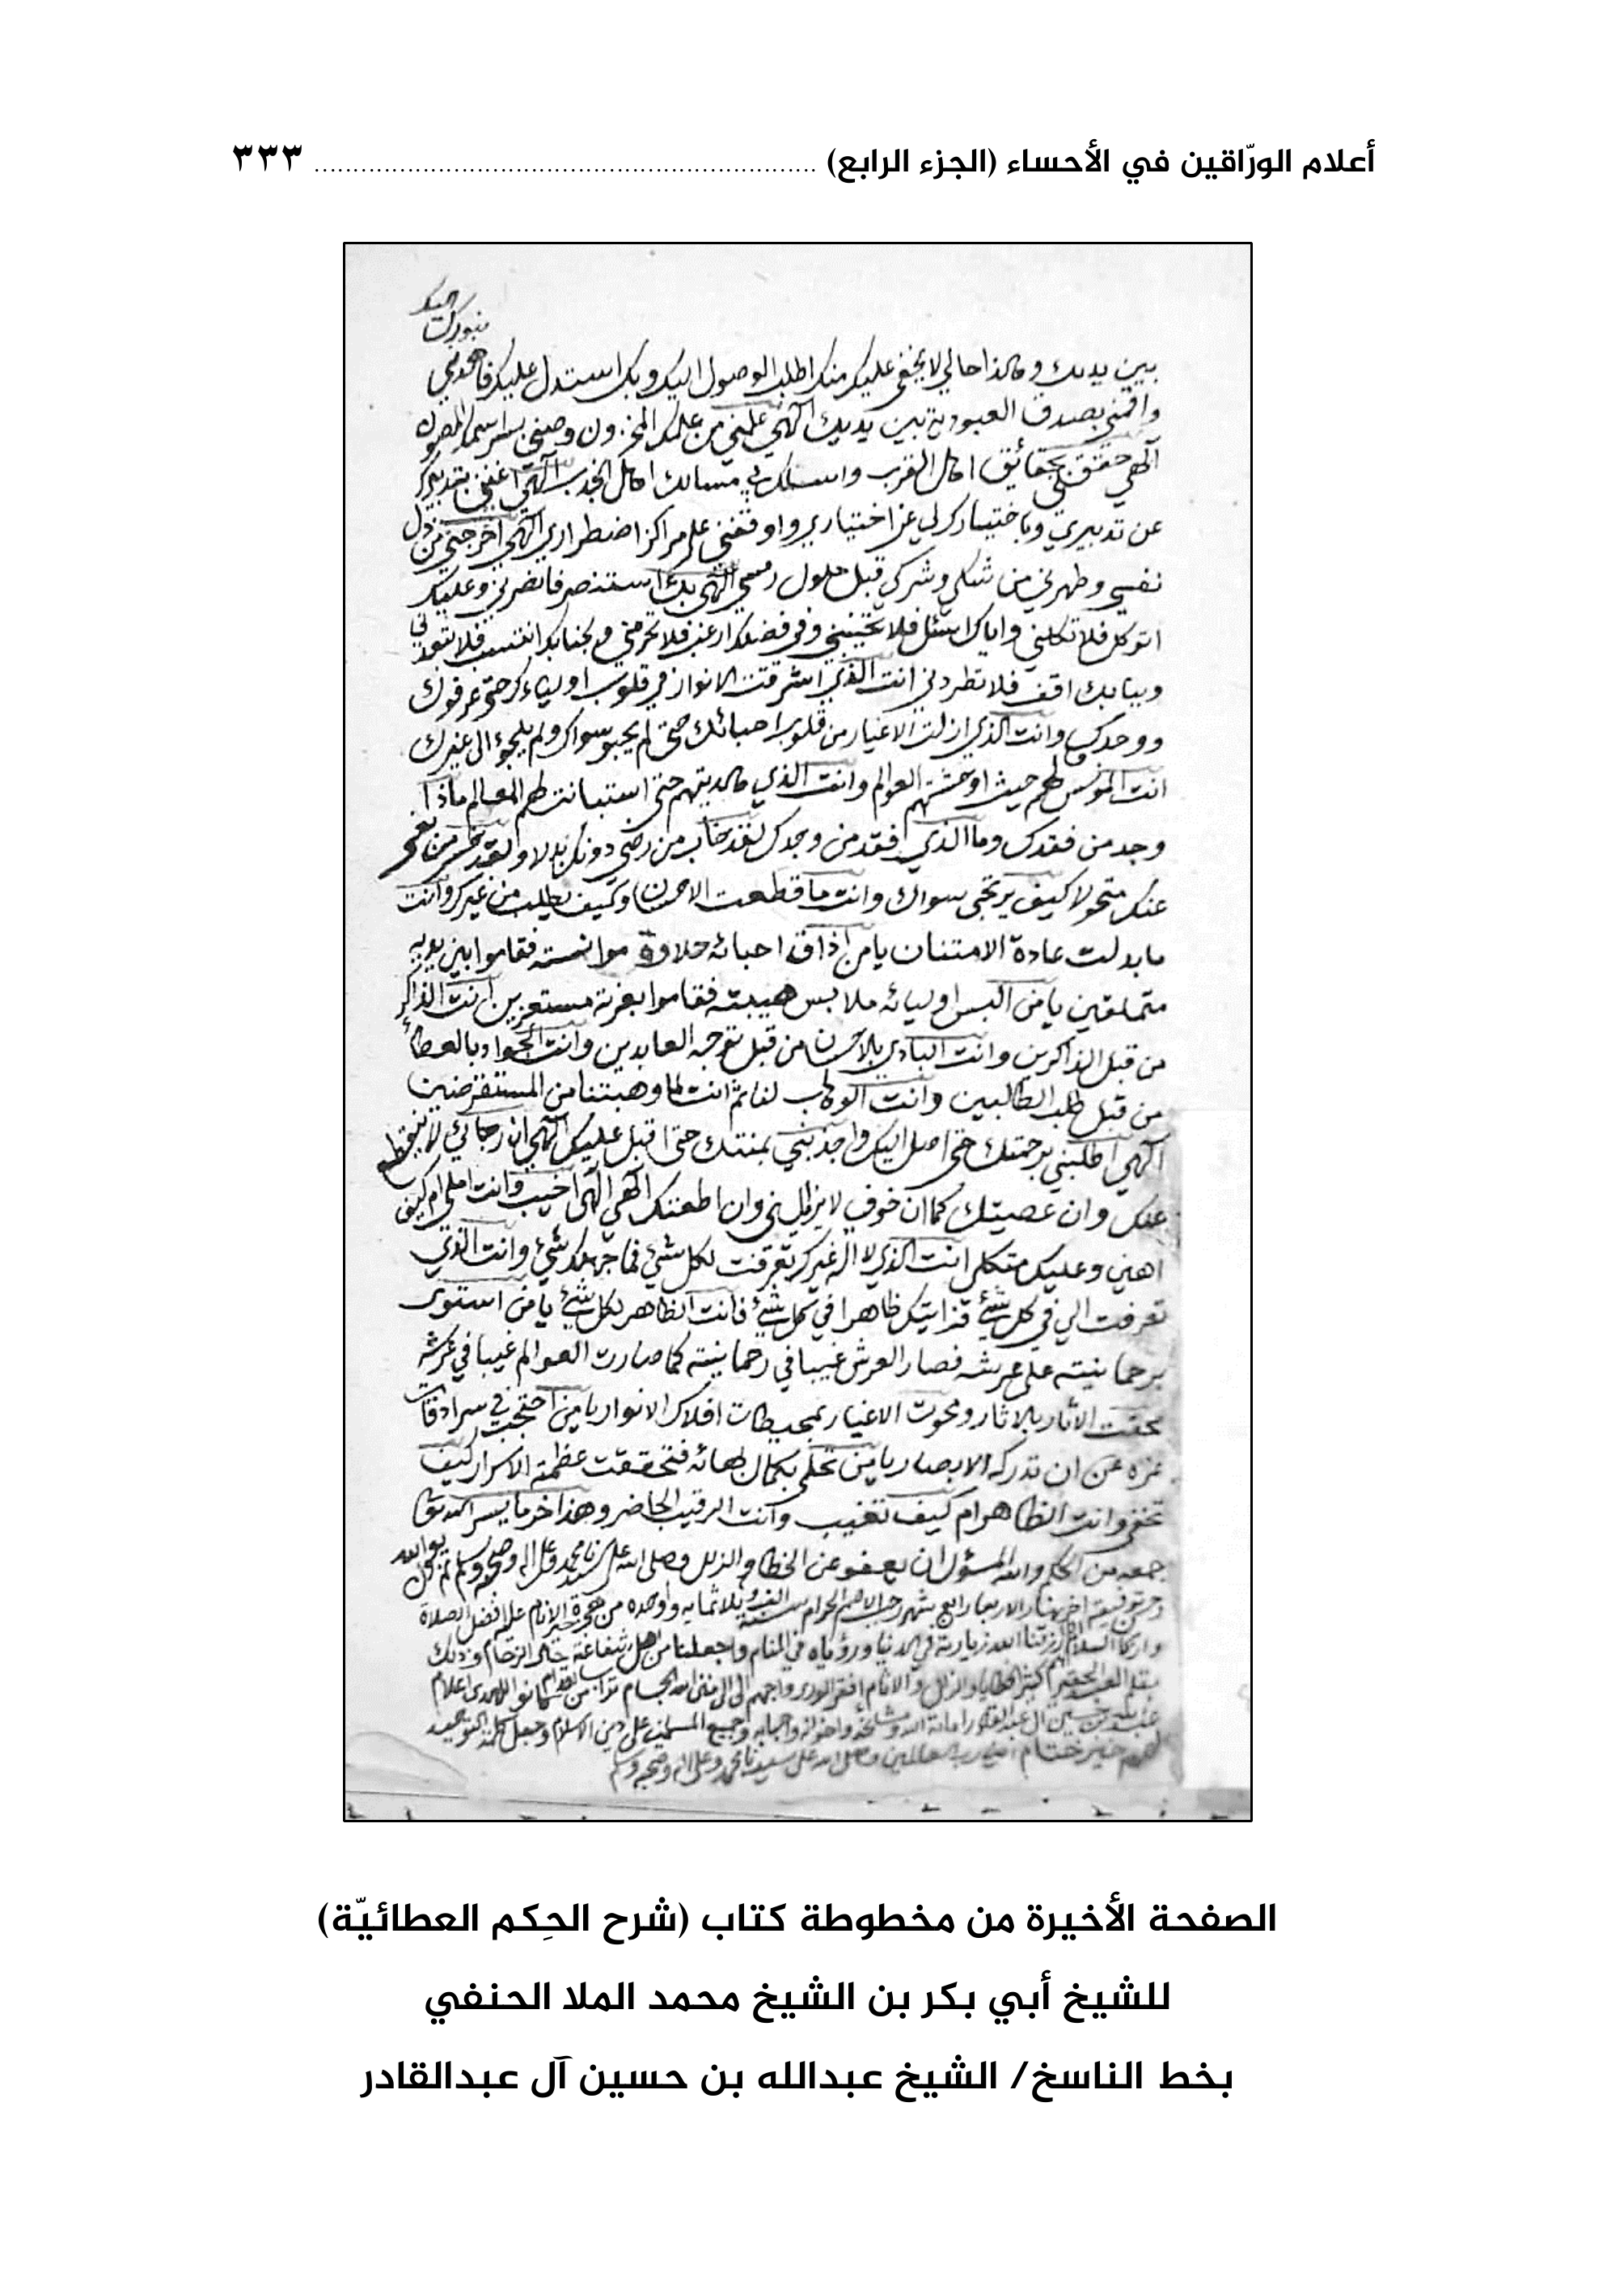 أعلام الورّاقين في الأحساء (الجزء الرابع) ................................................................ ٣٣٣
بنورك اليك
بين يديك وهذا حالي لا يخفى عليك منك اطلب الوصول اليك وبك استدل عليك فاهدني
واقمني بصدق العبودية بين يديك الهي علمني من علمك المخزون وصني بسر اسمك المصون
الهي حققني بحقائق اهل القرب واسلك بي مسالك اهل الجذب الهي اغنني بتدبيرك
عن تدبيري وباختيارك لي عن اختياري واوقفني على مراكز اضطراري الهي اخرجني من ذل
نفسي وطهرني من شكي وشركي قبل حلول رمسي الهي بك استنصر فانصرني وعليك
اتوكل فلا تكلني واياك اسئل فلا تخيبني وفي فضلك ارغب فلا تحرمني ولجنابك انتسب فلا تبعدني
وببابك اقف فلا تطردني انت الذي اشرقت الانوار في قلوب اولياءك حتى عرفوك
ووحدوك وانت الذي ازلت الاغيار من قلوب احبائك حتى لم يحبو سواك ولم يلجؤ الى غيرك
انت المونس لهم حيث اوحشتهم العوالم وانت الذي هديتهم حتى استبانت لهم المعالم ماذا
وجد من فقدك وما الذي فقد من وجدك لقد خاب من رضي دونك بدلا ولقد خسر من بغى
عنك متحولا كيف يرتجى سواك وانت ما قطعت الاحسان وكيف يطلب من غيرك وانت
ما بدلت عادة الامتنان يا من اذاق احبائه حلاوة موانسته فقاموا بين يديه
متملقين يا من البس اوليائه ملابس هيبته فقاموا بعزته مستعزين انت الذاكر
من قبل الذاكرين وانت البادي بالاحسان من قبل توجه العابدين وانت الجواد بالعطاء
من قبل طلب الطالبين وانت الوهاب لنا ثم انت لما وهبتنا من المستقرضين
الهي اطلبني برحمتك حتى اصل اليك واجذبني بمنتك حتى اقبل عليك الهي ان رجائي لا ينقطع
عنك وان عصيتك كما ان خوفي لا يزايلني وان اطعتك الهي اخيب وانت املي ام كيف
اهنى وعليك متكلي انت الذي لا اله غيرك تعرفت لكل شيء فما جهلك شيء وانت الذي
تعرفت الي في كل شيء فرايتك ظاهرا في كل شيء فانت الظاهر لكل شيء يا من استوى
برحمانيته على عرشه فصار العرش غيبا في رحمانيته كما صارت العوالم غيبا في عرشه
محقت الاثار بالاثار ومحوت الاغيار بمحيطات افلاك الانوار يا من احتجب في سرادقات
عزه عن ان تدركه الابصار يا من تجلى بكمال بهائه فتحققت عظمته الاسرار كيف
تخفى وانت الظاهر ام كيف تغيب وانت الرقيب الحاضر وهذا اخر ما يسر الله تعالى
جمعه من الحكم والله المسؤل ان يعفو عن الخطا والزلل وصلى الله على سيدنا محمد وعلى اله وصحبه وسلم
وحسن توفيقه اخر نهار الاربعا رابع شهر رجب الاصم الحرام سنة الف وثلاثمايه وواحده من هجرة خير الانام عليه افضل الصلاة
وازكى السلام رزقنا الله زيارته في الدنيا ورؤياه في المنام واجعلنا من اهل شفاعته حال الزحام وذلك
بقلم العبد الحقير كثير الخطايا والزلل والاثام افقر الورى
عبدالله بن حسين ال عبدالقادر واخوانه واحبابه وجميع المسلمين على دين الاسلام وجعل كلمة التوحيد
لهم خير ختام امين رب العالمين وصلى الله على سيدنا محمد وعلى اله وصحبه وسلم
الصفحة الأخيرة من مخطوطة كتاب (شرح الحِكم العطائيّة)
للشيخ أبي بكر بن الشيخ محمد الملا الحنفي
بخط الناسخ/ الشيخ عبدالله بن حسين آل عبدالقادر